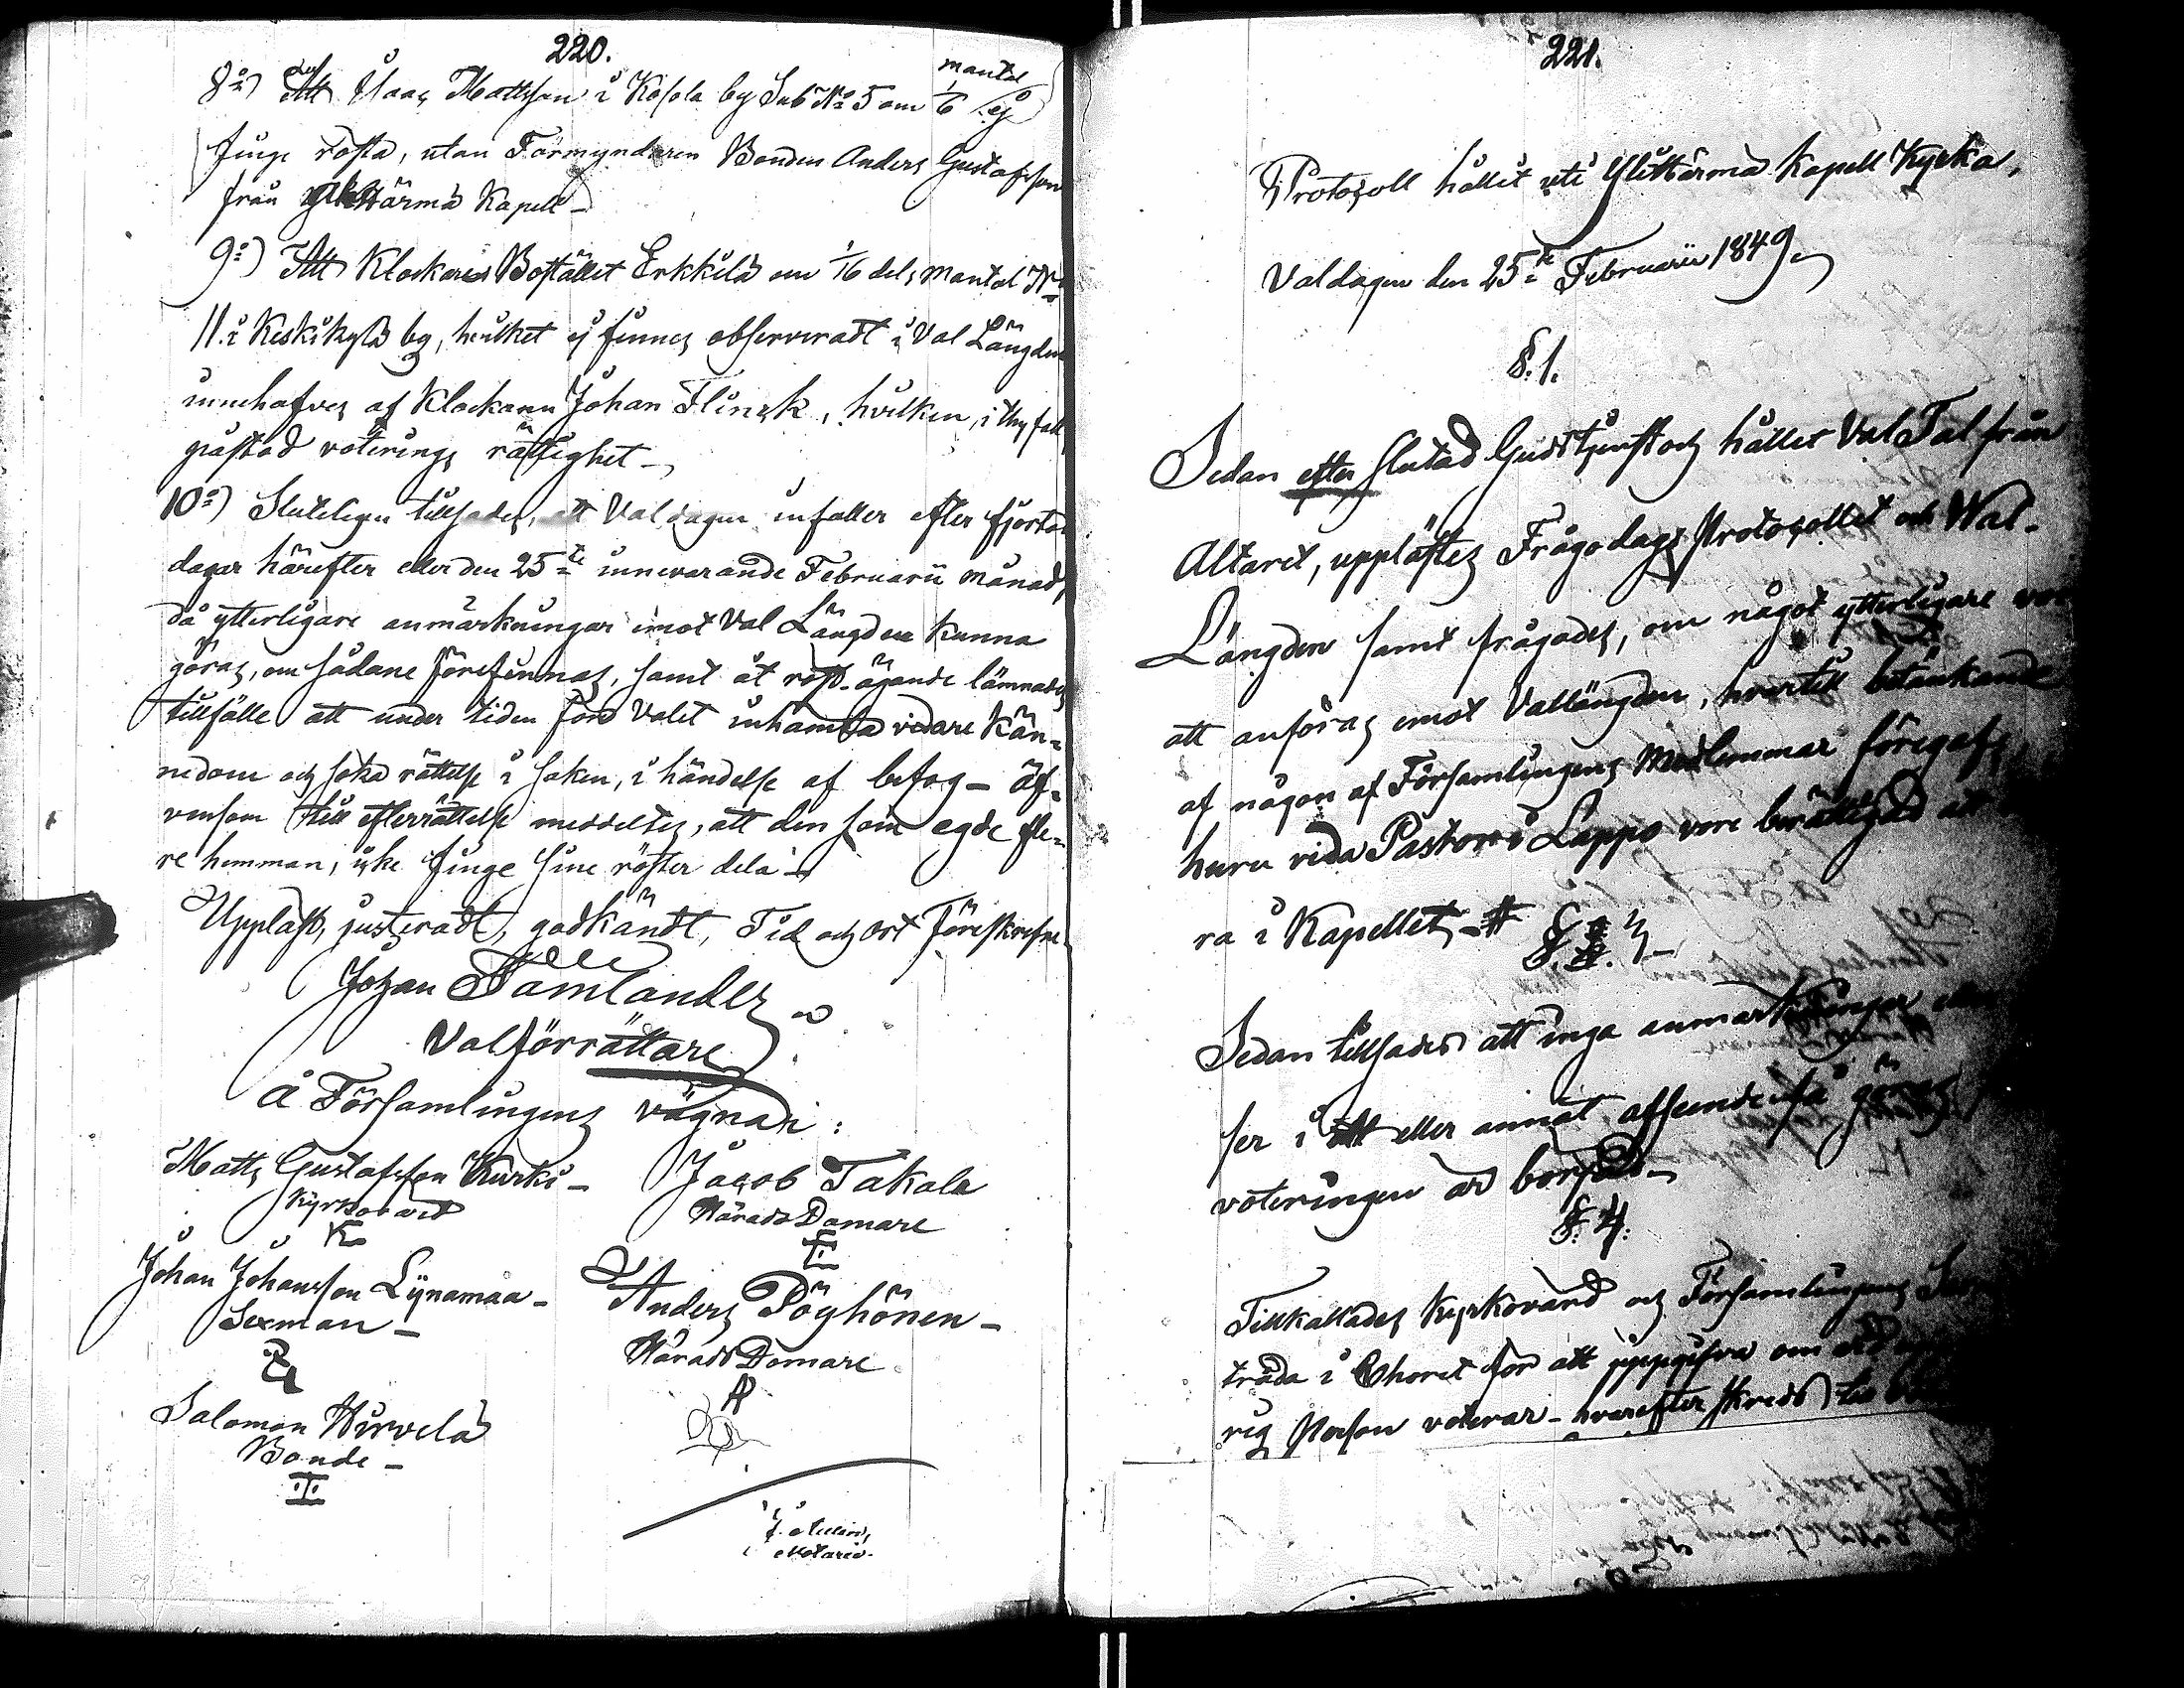 220.
8:o) Att Isaac Mattsson i Kosola by Sub No 5 om 1/6 mantal ej
finge rösta, utan Förmyndaren Bonden Anders Gustafsson
från Ylihärmä Kapell_
9:o) Att Klockares Bostället Erkkilä om 1/16 dels mantal No
11. i Keskikylä by, hvilket ej finnes observeradt i Val Längden
innehafves af Klockaren Johan Flinck, hvilken, i thy fall
påstod voterings rättighet_
10:o) Sluteligen tillsades, att Valdagen infaller efter fjorton
dagar härefter eller den 25te innevarande Februarii månad,
då ytterligare anmärkningar imot Val Längden kunna
göras, om sådane förefinnas, samt åt röst-ägande lämnades
tillfälle att under tiden före Valet inhämta vidare kän=
nedom och söka rättelse i saken, i händelse af befog_ äf=
vensom till efterrättelse meddeltes, att den som egde fle=
re hemman, icke finge sine röster dela_
Uppläst, justeradt, godkändt, Tid och ort Föreskrefne
Johan
Valförrättare
å Församlingens vägnar:
Matts Gustafsson Kurki_
Kyrkovärd
Jacob Takala
Härads Domare
Johan Johansson Lynamaa_
Sexman_
Anders Pöyhönen_
Härads Domare
Salomon Hirvelä
Bonde_
Notarie.
221.
Protocoll hållit uti Ylihärmä Kapell Kyrka,
Valdagen den 25te Februarii 1849_
§. 1.
Sedan efter slutad Gudstjenst och hållet Val Tal från
Altaret, upplästes Frågodags Protocollet och Wal-
Längden samt frågades, om något ytterligare vore
att anföras emot Vallängden, hvartill betänkande
af någon af Församlingens Medlemmar föregafs,
huru vida Pastor i Lappo vore berättigad att
ra i Kapellet_
§. 3_
Sedan tillsades att inga anmärkningar eller
ser i ett eller annat afseende få göras,
voteringen är börjad_
§. 4.
Tillkallades Kyrkovärd och Församlingens
träda i Choret för att uppgifva om
rig Person voterar_ hvarefter skreds till